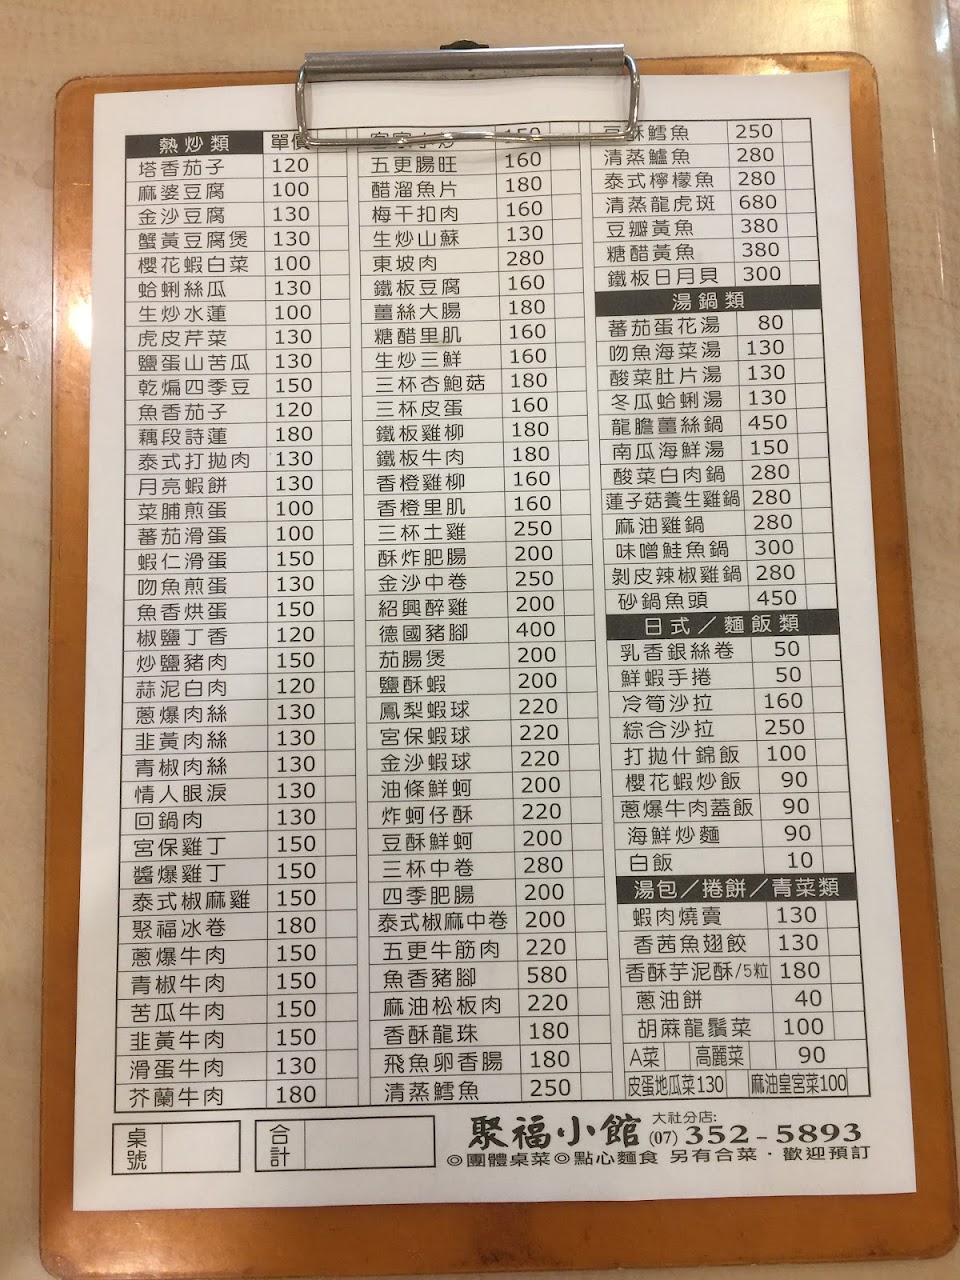 熱炒類 單價
塔香茄子 120
麻婆豆腐 100
金沙豆腐 130
蟹黃豆腐煲 130
櫻花蝦白菜 100
蛤蜊絲瓜 130
生炒水蓮 100
虎皮芹菜 130
鹽蛋山苦瓜 130
乾煸四季豆 150
魚香茄子 120
藕段詩蓮 180
泰式打拋肉 130
月亮蝦餅 130
菜脯煎蛋 100
蕃茄滑蛋 100
蝦仁滑蛋 150
吻魚煎蛋 130
魚香烘蛋 150
椒鹽丁香 120
炒鹽豬肉 150
蒜泥白肉 120
蔥爆肉絲 130
韭黃肉絲 130
青椒肉絲 130
情人眼淚 130
回鍋肉 130
宮保雞丁 150
醬爆雞丁 150
泰式椒麻雞 150
聚福冰卷 180
蔥爆牛肉 150
青椒牛肉 150
苦瓜牛肉 150
韭黃牛肉 150
滑蛋牛肉 130
芥蘭牛肉 180
客家小炒 150
五更腸旺 160
醋溜魚片 180
梅干扣肉 160
生炒山蘇 130
東坡肉 280
鐵板豆腐 160
薑絲大腸 180
糖醋里肌 160
生炒三鮮 160
三杯杏鮑菇 180
三杯皮蛋 160
鐵板雞柳 180
鐵板牛肉 180
香橙雞柳 160
香橙里肌 160
三杯土雞 250
酥炸肥腸 200
金沙中卷 250
紹興醉雞 200
德國豬腳 400
茄腸煲 200
鹽酥蝦 200
鳳梨蝦球 220
宮保蝦球 220
金沙蝦球 220
油條鮮蚵 200
炸蚵仔酥 220
豆酥鮮蚵 200
三杯中卷 280
四季肥腸 200
泰式椒麻中卷 200
五更牛筋肉 220
魚香豬腳 580
麻油松板肉 220
香酥龍珠 180
飛魚卵香腸 180
清蒸鱈魚 250
豆酥鱈魚 250
清蒸鱸魚 280
泰式檸檬魚 280
清蒸龍虎斑 680
豆瓣黃魚 380
糖醋黃魚 380
鐵板日月貝 300
湯鍋類
蕃茄蛋花湯 80
吻魚海菜湯 130
酸菜肚片湯 130
冬瓜蛤蜊湯 130
龍膽薑絲鍋 450
南瓜海鮮湯 150
酸菜白肉鍋 280
蓮子菇養生雞鍋 280
麻油雞鍋 280
味噌鮭魚鍋 300
剝皮辣椒雞鍋 280
砂鍋魚頭 450
日式／麵飯類
乳香銀絲卷 50
鮮蝦手捲 50
冷筍沙拉 160
綜合沙拉 250
打拋什錦飯 100
櫻花蝦炒飯 90
蔥爆牛肉蓋飯 90
海鮮炒麵 90
白飯 10
湯包／捲餅／青菜類
蝦肉燒賣 130
香茜魚翅餃 130
香酥芋泥酥/5粒 180
蔥油餅 40
胡蔴龍鬚菜 100
A菜 高麗菜 90
皮蛋地瓜菜130 麻油皇宮菜100
桌號
合計
聚福小館 大社分店: (07) 352-5893
◎團體桌菜◎點心麵食 另有合菜．歡迎預訂